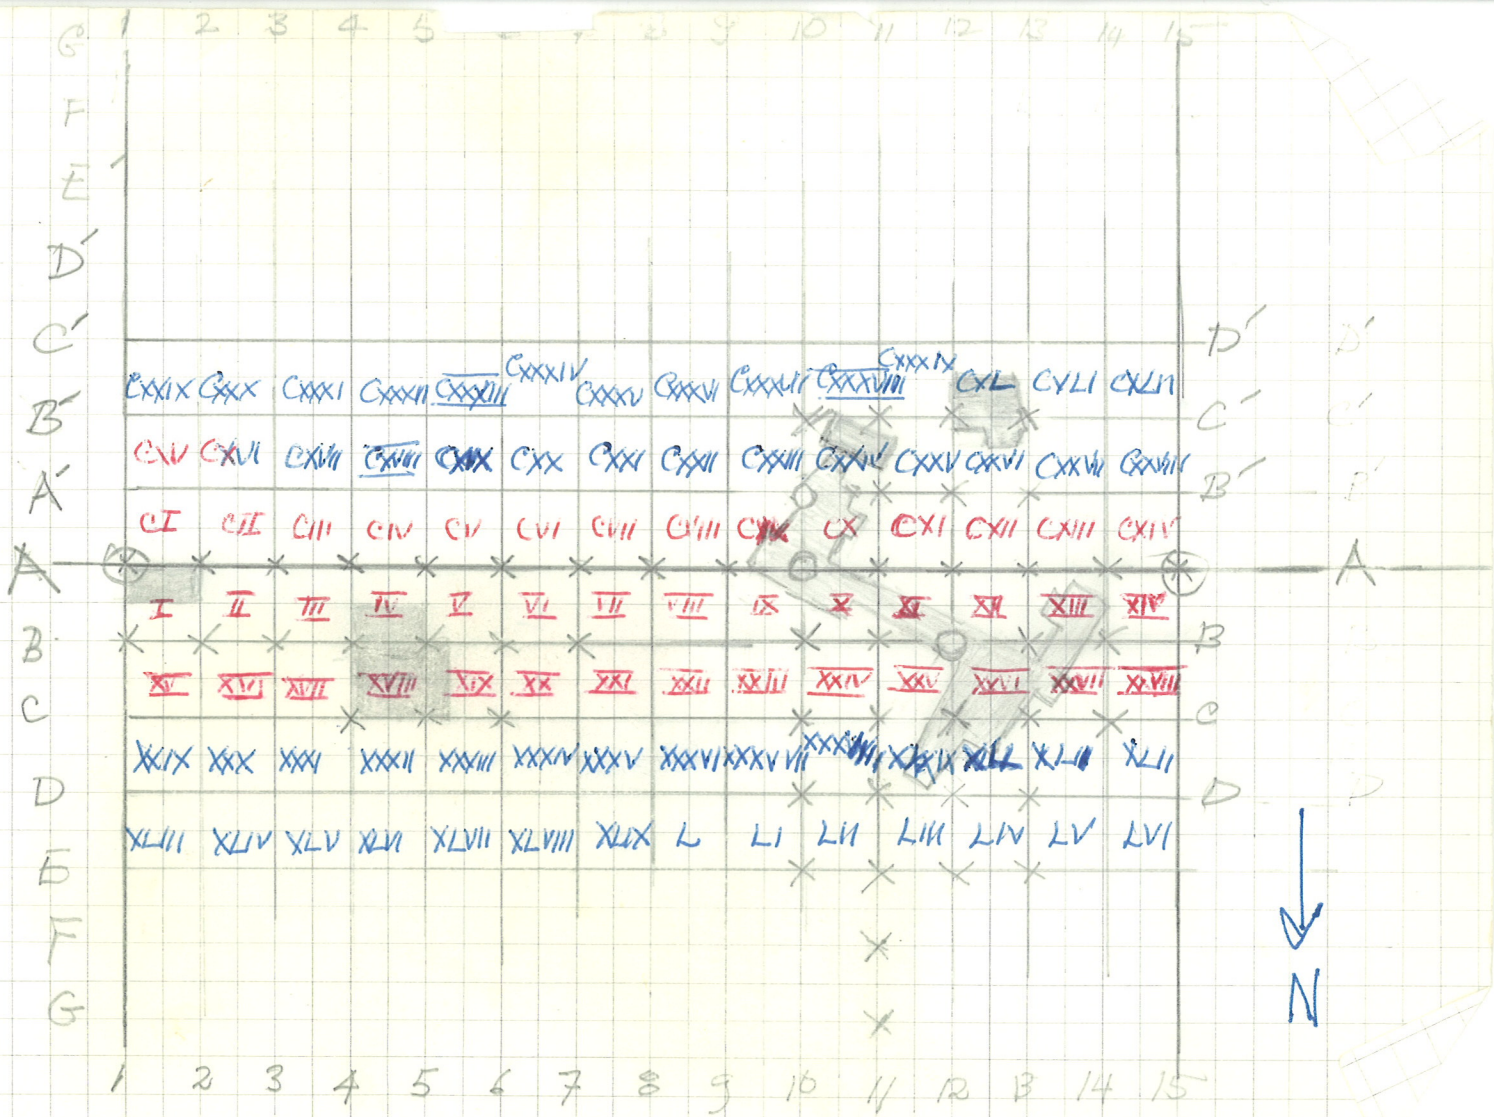 G 1 2 3 4 5 6 7 8 9 10 11 12 13 14 15
F
E
D′
C′ D′ D′
CXXIX CXXX CXXXI CXXXII CXXXIII CXXXIV CXXXV CXXXVI CXXXVII CXXXVIII CXXXIX CXL CVLI CXLII
B′ C′ C′
CXV CXVI CXVII CXVIII CXIX CXX CXXI CXXII CXXIII CXXIV CXXV CXXVI CXXVII CXXVIII
A′ B′ B′
CI CII CIII CIV CV CVI CVII CVIII CIX CX CXI CXII CXIII CXIV
A A
I II III IV V VI VII VIII IX X XI XII XIII XIV
B B
XV XVI XVII XVIII XIX XX XXI XXII XXIII XXIV XXV XXVI XXVII XXVIII
C C
XXIX XXX XXXI XXXII XXXIII XXXIV XXXV XXXVI XXXVII XXXVIII XLII
D D D
XLIII XLIV XLV XLVI XLVII XLVIII XLIX L LI LII LIII LIV LV LVI
E
F
G
N
1 2 3 4 5 6 7 8 9 10 11 12 13 14 15